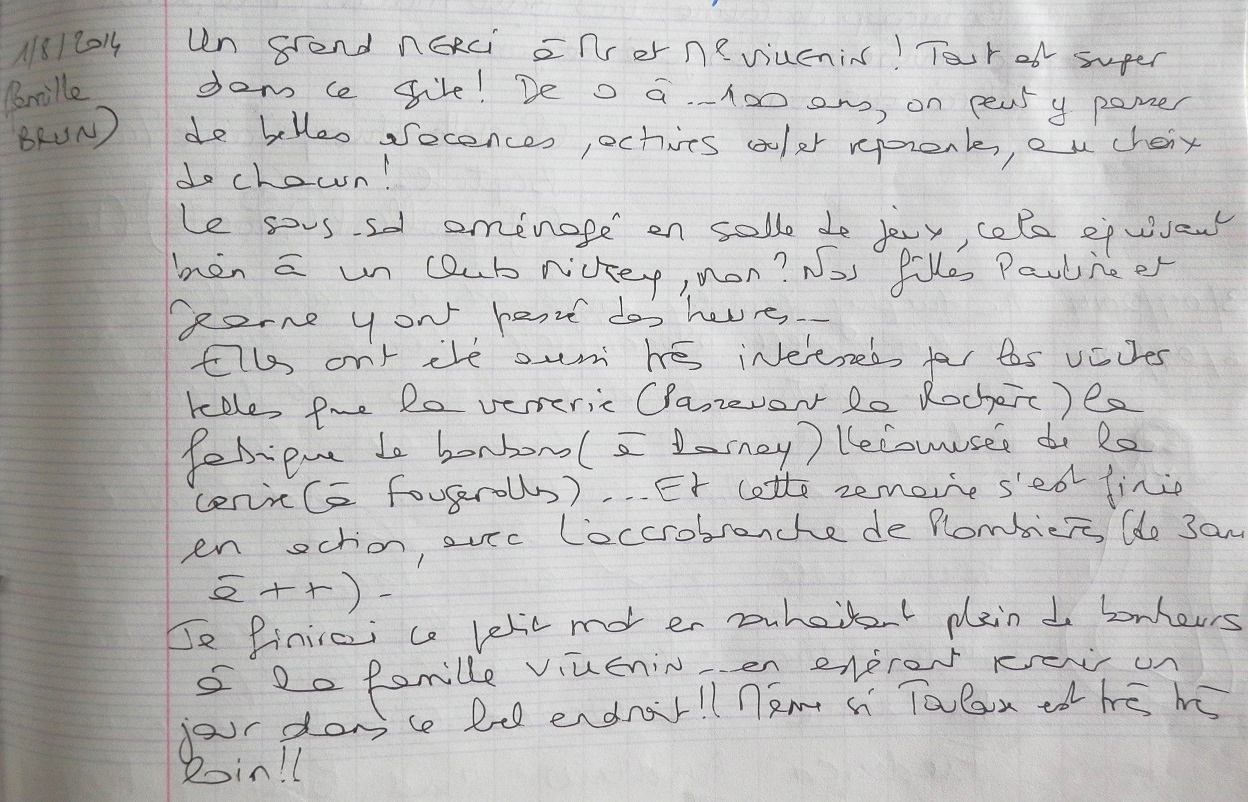 1/8/2014
famille
BRUN)
Un grand MERCI à Mr et Mme VIUENIN ! Tout est super
dans ce gîte ! De 0 à ...100 ans, on peut y passer
de belles vacances, actives ou/et reposantes, au choix
de chacun !
Le sous-sol aménagé en salle de jeux, cela équivaut
bien à un Club Mickey, non ? Nos filles Pauline et
Jeanne y ont passé des heures...
Elles ont été aussi très intéressées par les visites
telles que la verrerie (Passavant la Rochère) la
fabrique de bonbons (à Darney) l'écomusée de la
cerise (à Fougerolles) ... Et cette semaine s'est finie
en action, avec l'accrobranche de Plombières (de 3 ans
à ++) -
Je finirai ce petit mot en souhaitant plein de bonheurs
à la famille VIUENIN ... en espérant revenir un
jour dans ce bel endroit !! Même si est très très
loin !!